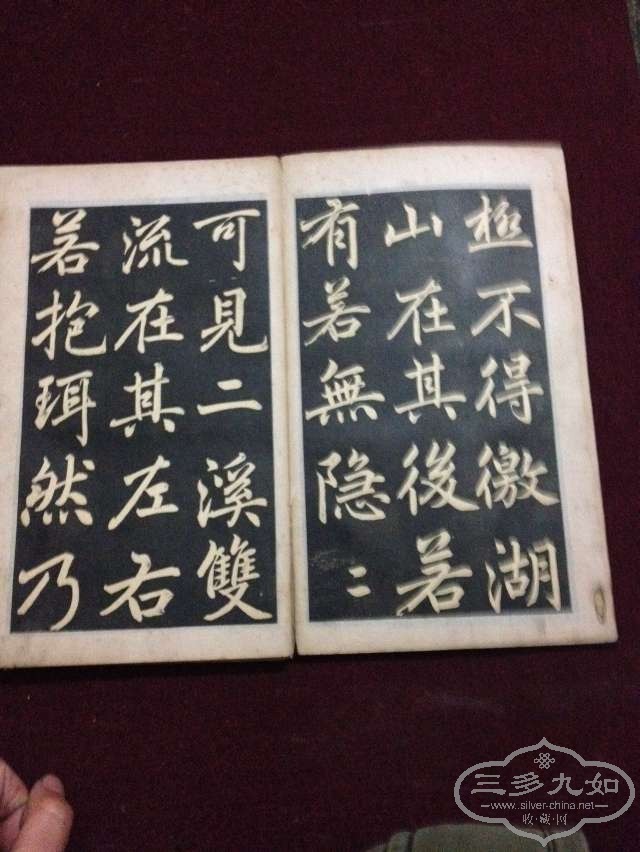 極不得徼湖
山在其後若
有若無隐二
可見二溪雙
流在其左右
若抱珥然乃
三多九如
www.silver-china.net
收·藏·网